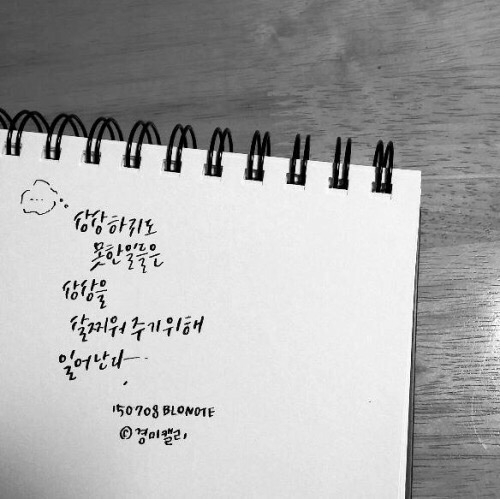 ...
상상하지도
못한 일들은
상상을
살찌워 주기 위해
일어난다...
150708 BLONOTE
©경미캘리